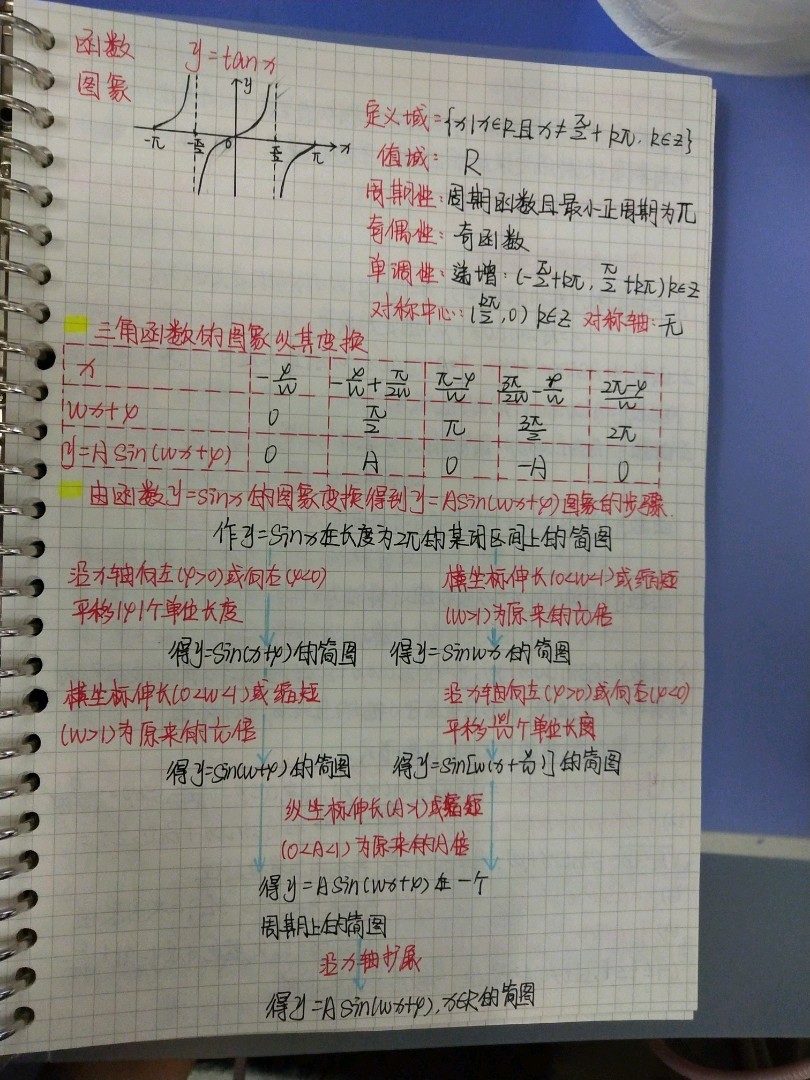 函数 y=tanx
图象
y
-π -π/2 0 π/2 π x
定义域={x|x∈R且x≠π/2+kπ, k∈Z}
值域: R
周期性:周期函数且最小正周期为π
奇偶性:奇函数
单调性:递增:(-π/2+kπ, π/2+kπ)k∈Z
对称中心:(kπ/2,0) k∈Z 对称轴:无
三角函数的图象及其变换
x -φ/w -φ/w+π/2w π-φ/w 3π/2w-φ/w 2π-φ/w
wx+φ 0 π/2 π 3π/2 2π
y=Asin(wx+φ) 0 A 0 -A 0
由函数y=sinx的图象变换得到y=Asin(wx+φ)图象的步骤.
作y=Sinx在长度为2π的某闭区间上的简图
沿x轴向左(φ>0)或向右(φ<0)
平移|φ|个单位长度
横坐标伸长(0<w<1)或缩短
(w>1)为原来的1/w倍
得y=Sin(x+φ)的简图 得y=Sinwx的简图
横坐标伸长(0<w<1)或缩短
(w>1)为原来的1/w倍
沿x轴向左(φ>0)或向右(φ<0)
平移|φ/w|个单位长度
得y=Sin(w+φ)的简图 得y=Sin[w(x+φ/w)]的简图
纵坐标伸长(A>1)或缩短
(0<A<1)为原来的A倍
得y=ASin(wx+φ)在一个
周期上的简图
沿x轴扩展
得y=Asin(wx+φ),x∈R的简图